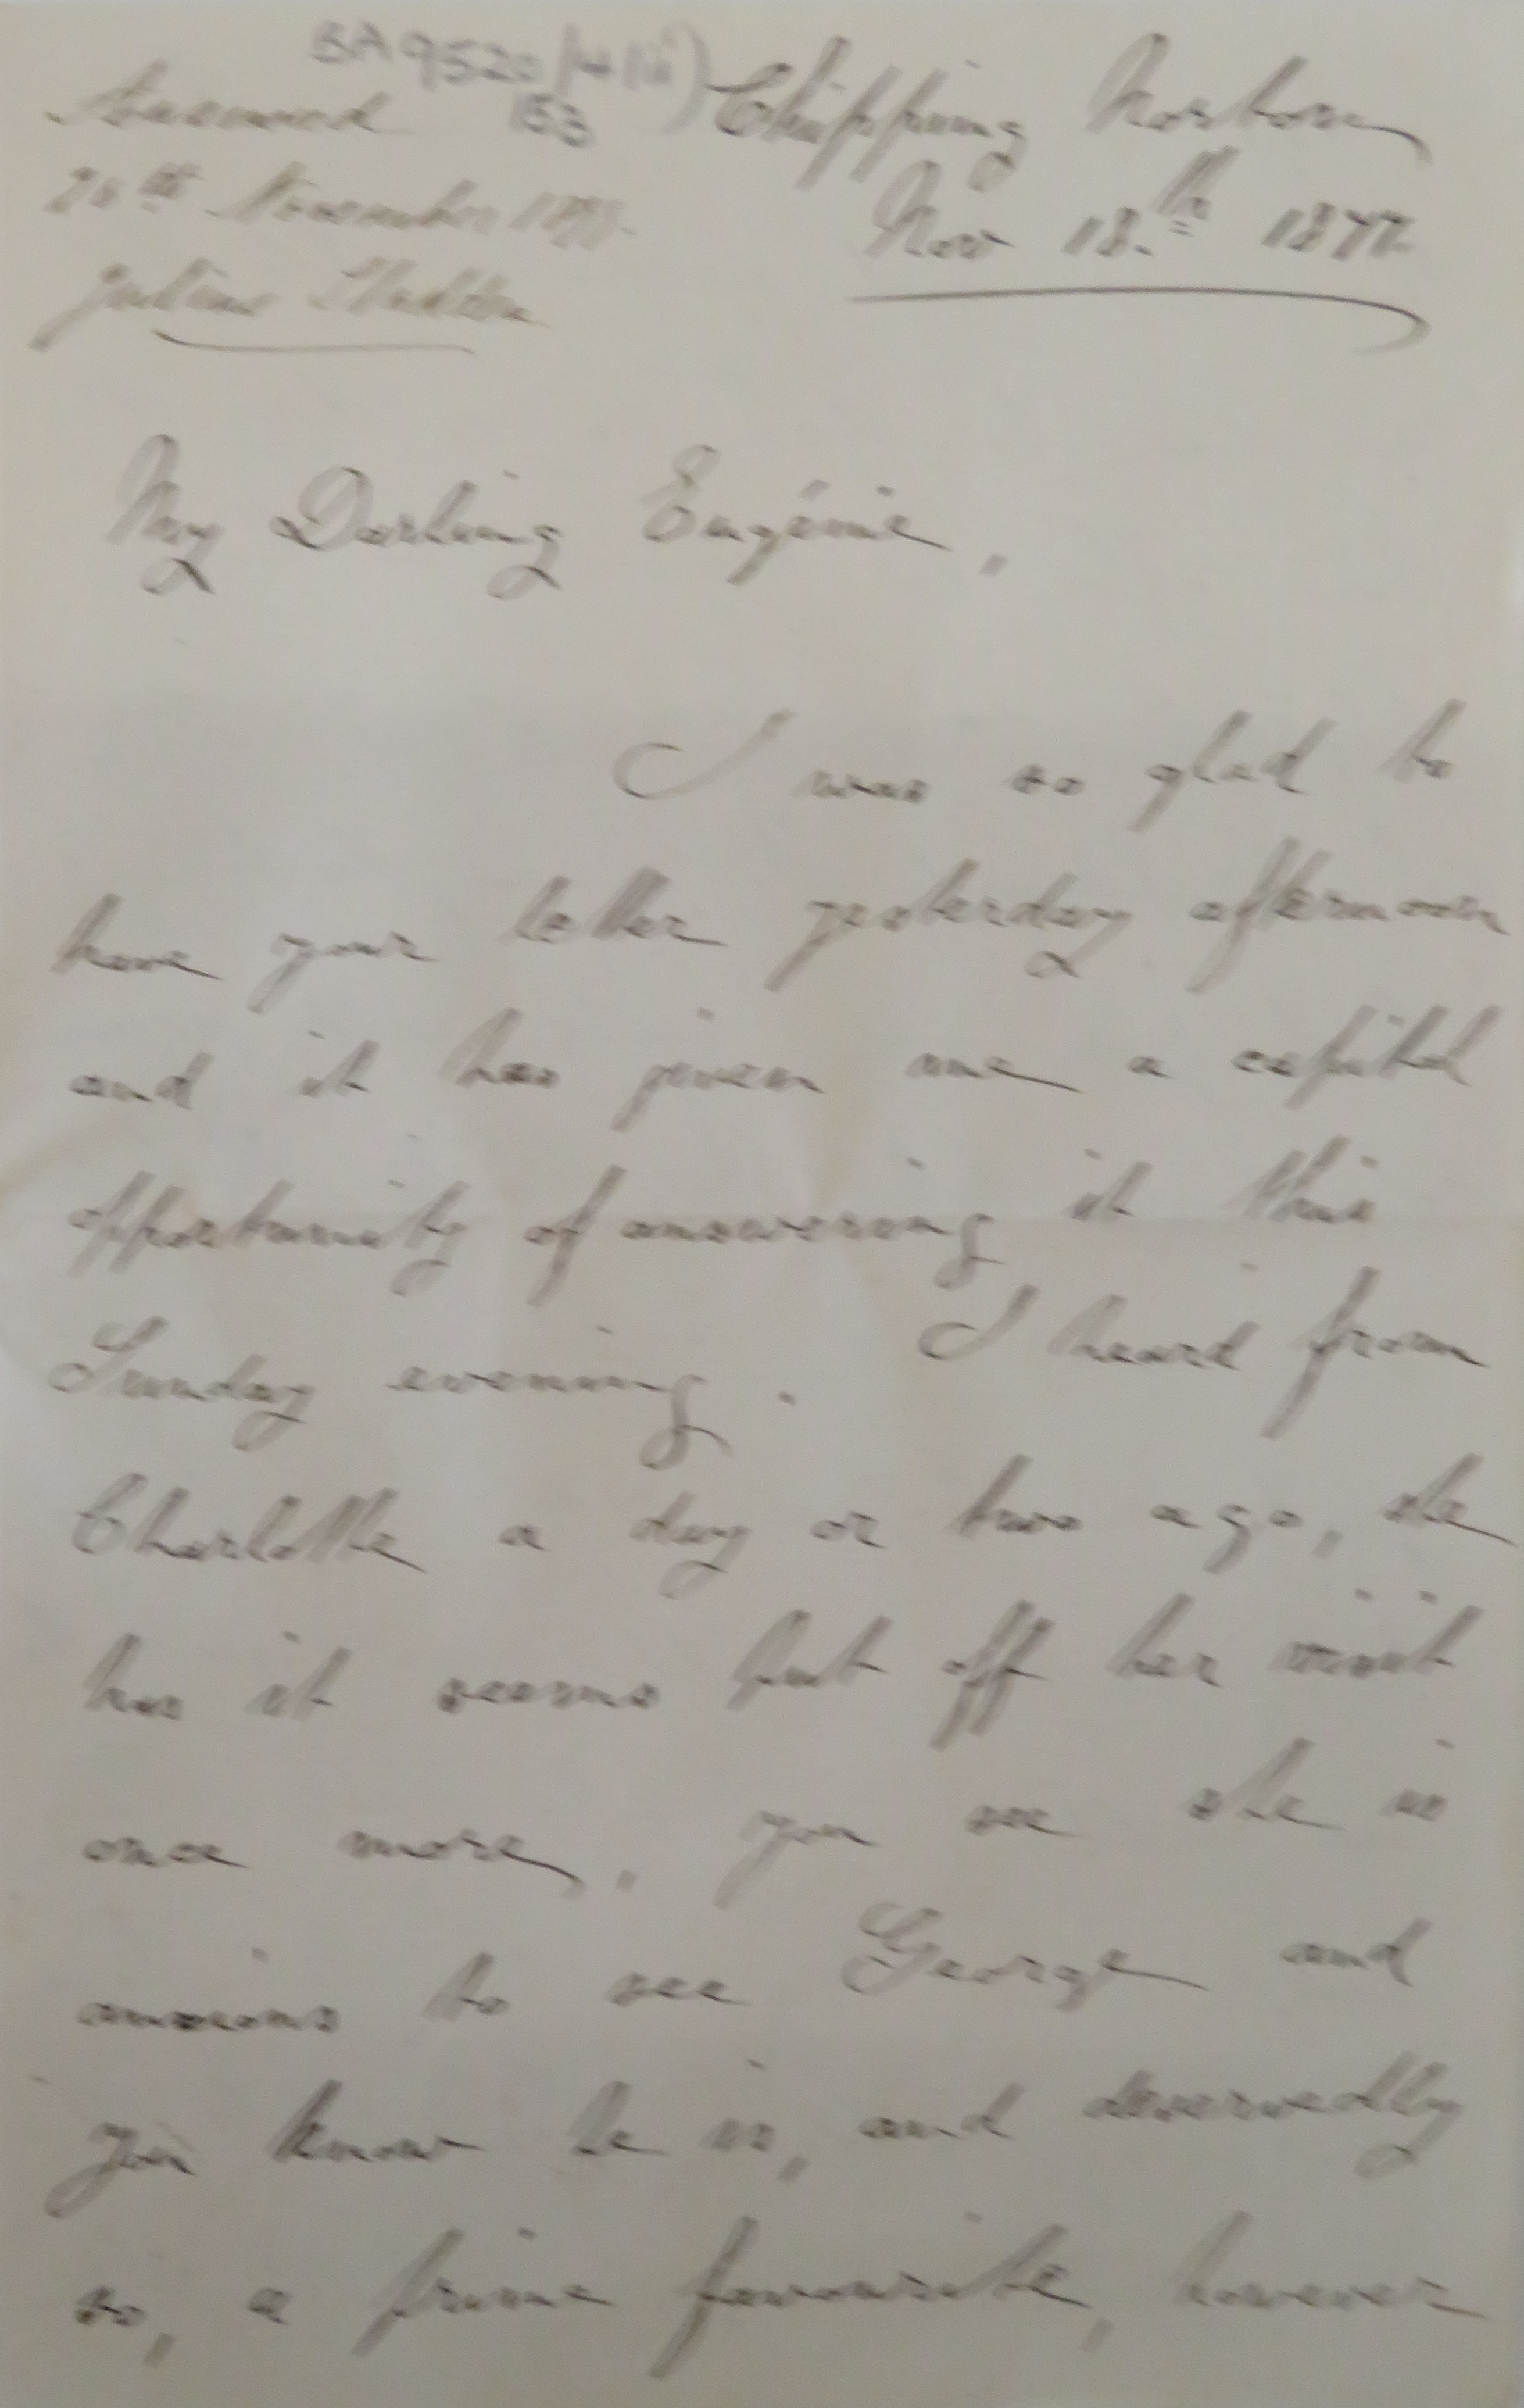 BA9520/4(ii)
153
Answered
November
Chipping Norton
Nov 18.th 1877
My Darling Eugénie,
I was so glad to
have your letter yesterday afternoon
and it has given me a capital
opportunity of answering it this
Sunday evening. I heard from
Charlotte a day or two ago, she
has it seems put off her visit
once more, you see she is
anxious to see George and
you know he is, and deservedly
so, a prime favourite, however